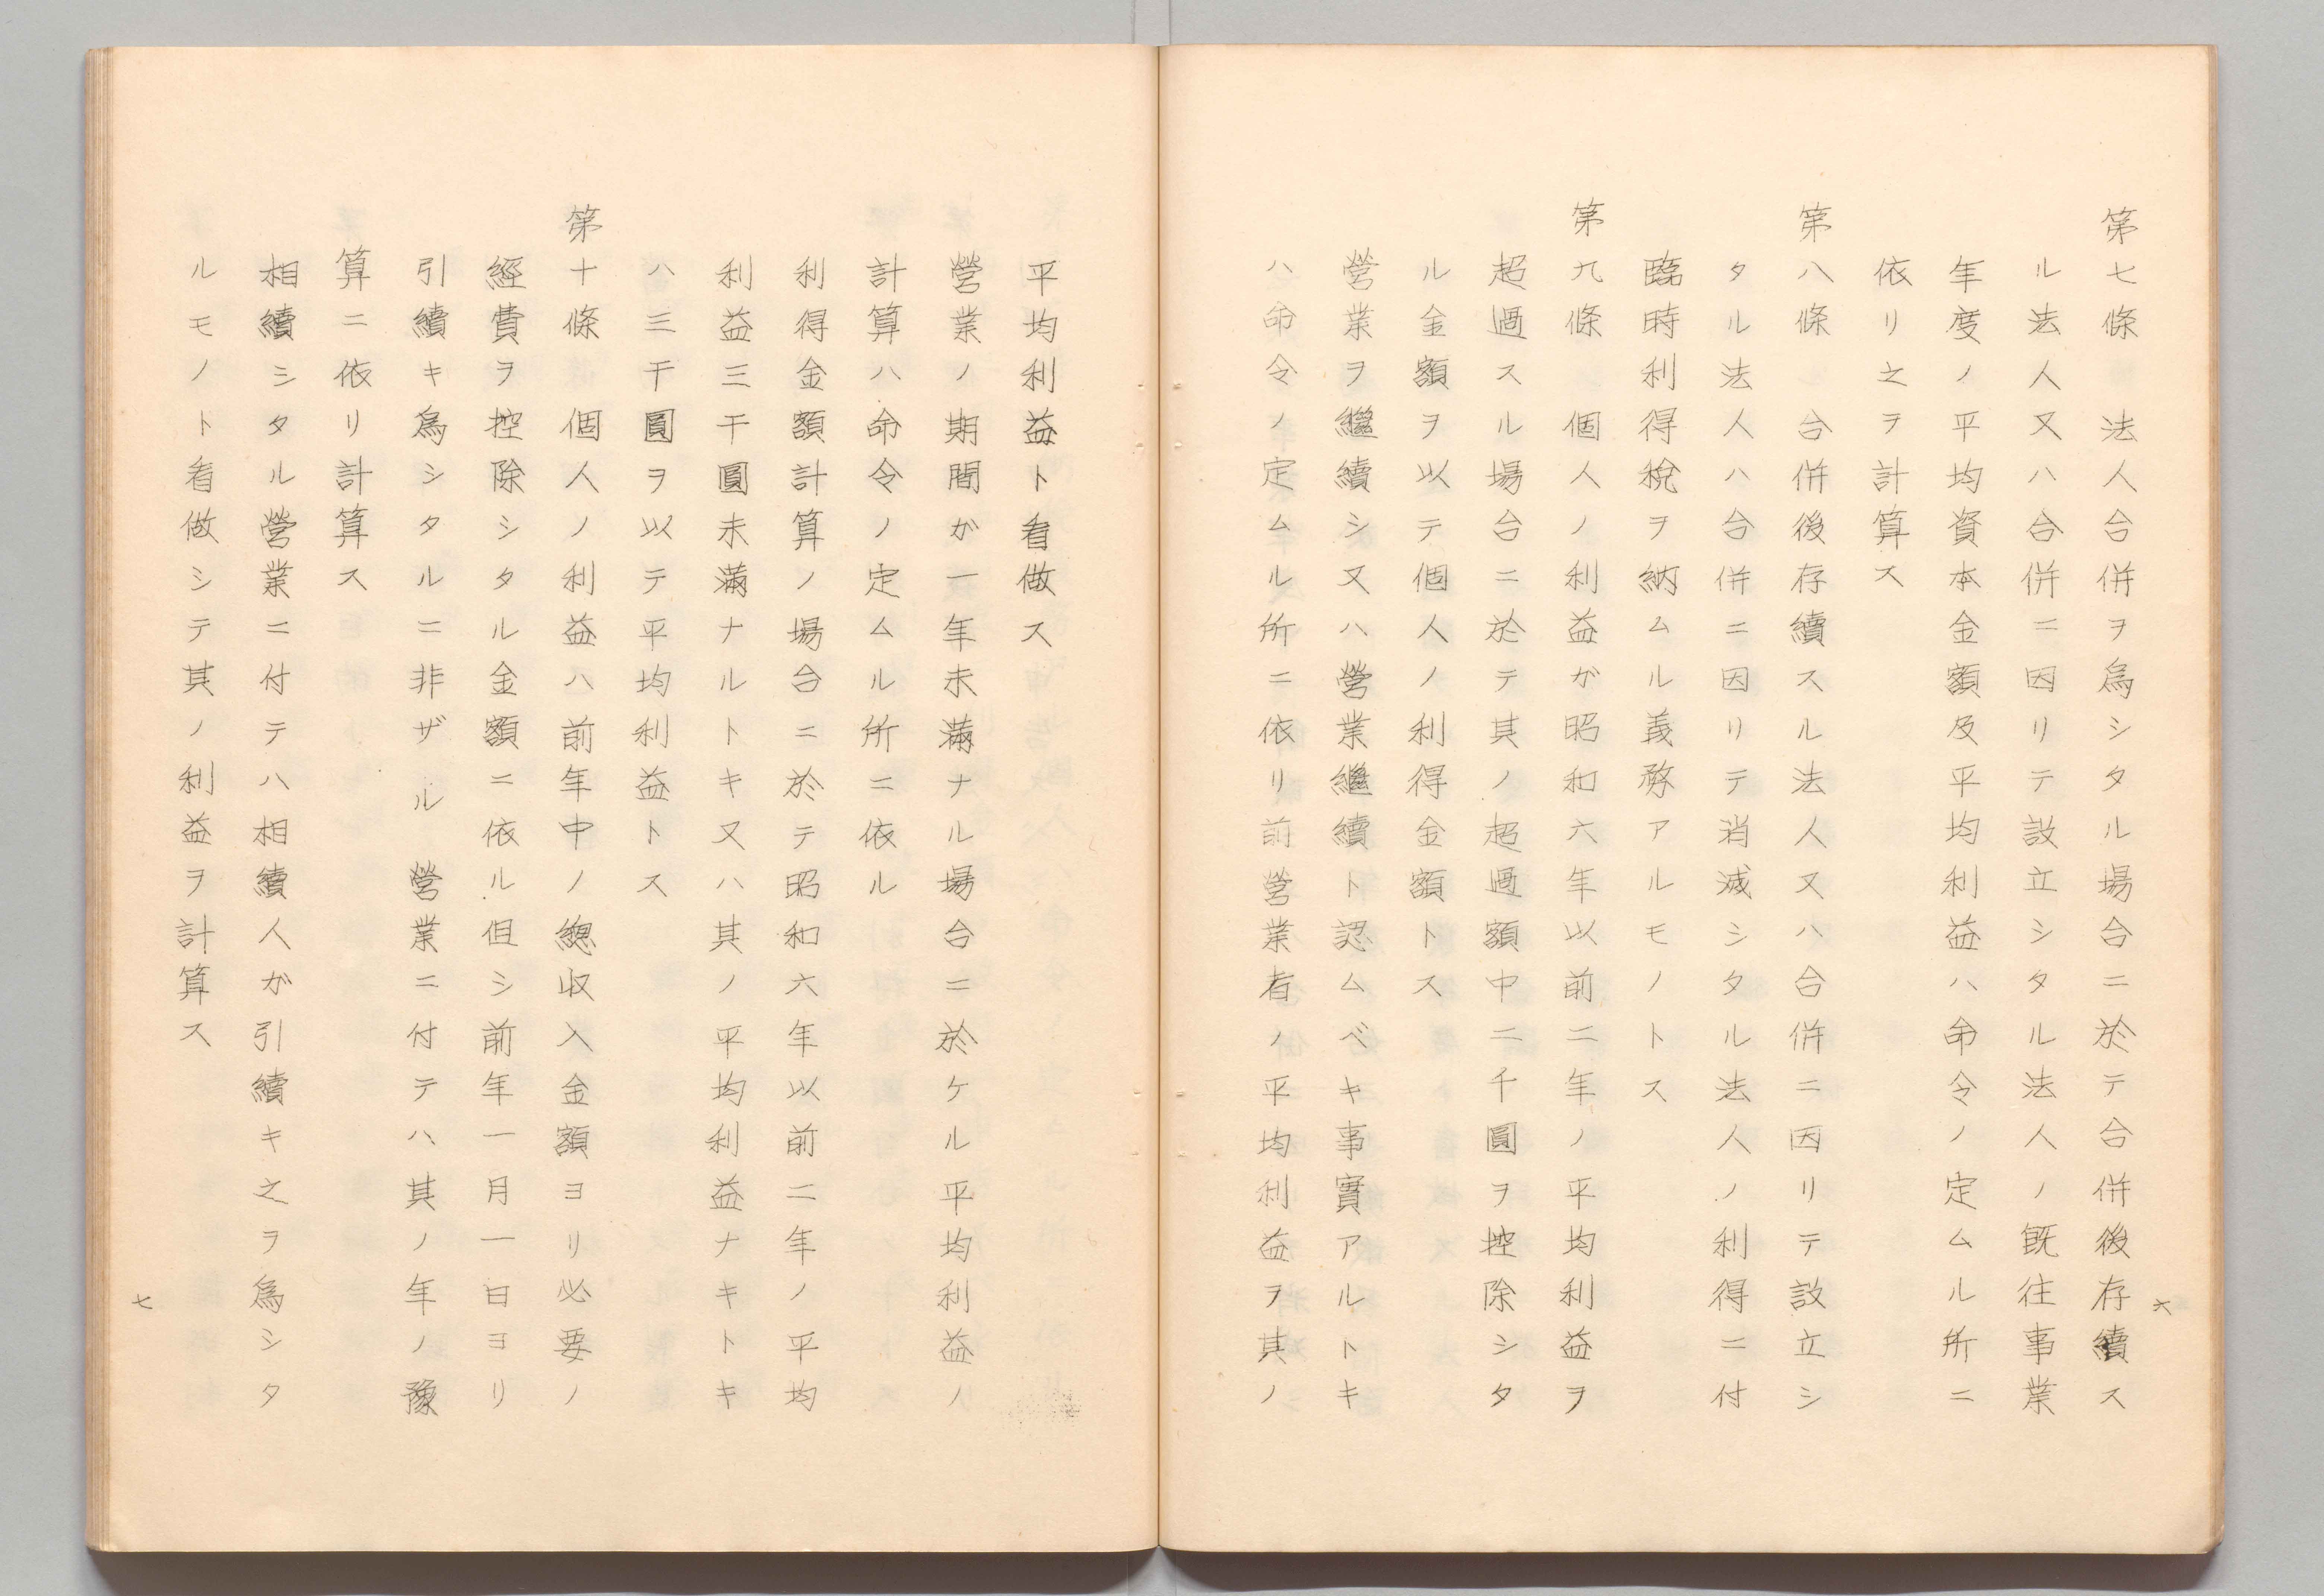 第七條　法人合併ヲ爲シタル場合ニ於テ合併後存續ス
ル法人又ハ合併ニ因リテ設立シタル法人ノ既往事業
年度ノ平均資本金額及平均利益ハ命令ノ定ムル所ニ
依リ之ヲ計算ス
第八條　合併後存續スル法人又ハ合併ニ因リテ設立シ
タル法人ハ合併ニ因リテ消滅シタル法人ノ利得ニ付
臨時利得稅ヲ納ムル義務アルモノトス
第九條　個人ノ利益ガ昭和六年以前二年ノ平均利益ヲ
超過スル場合ニ於テ其ノ超過額中二千圓ヲ控除シタ
ル金額ヲ以テ個人ノ利得金額トス
營業ヲ繼續シ又ハ營業繼續ト認ムベキ事實アルトキ
ハ命令ノ定ムル所ニ依リ前營業者ノ平均利益ヲ其ノ
六
平均利益ト看做ス
營業ノ期間ガ一年未滿ナル場合ニ於ケル平均利益ノ
計算ハ命令ノ定ムル所ニ依ル
利得金額計算ノ場合ニ於テ昭和六年以前二年ノ平均
利益三千圓未滿ナルトキ又ハ其ノ平均利益ナキトキ
ハ三千圓ヲ以テ平均利益トス
第十條　個人ノ利益ハ前年中ノ總收入金額ヨリ必要ノ
經費ヲ控除シタル金額ニ依ル但シ前年一月一日ヨリ
引續キ爲シタルニ非ザル營業ニ付テハ其ノ年ノ豫
算ニ依リ計算ス
相續シタル營業ニ付テハ相續人ガ引續キ之ヲ爲シタ
ルモノト看做シテ其ノ利益ヲ計算ス
七